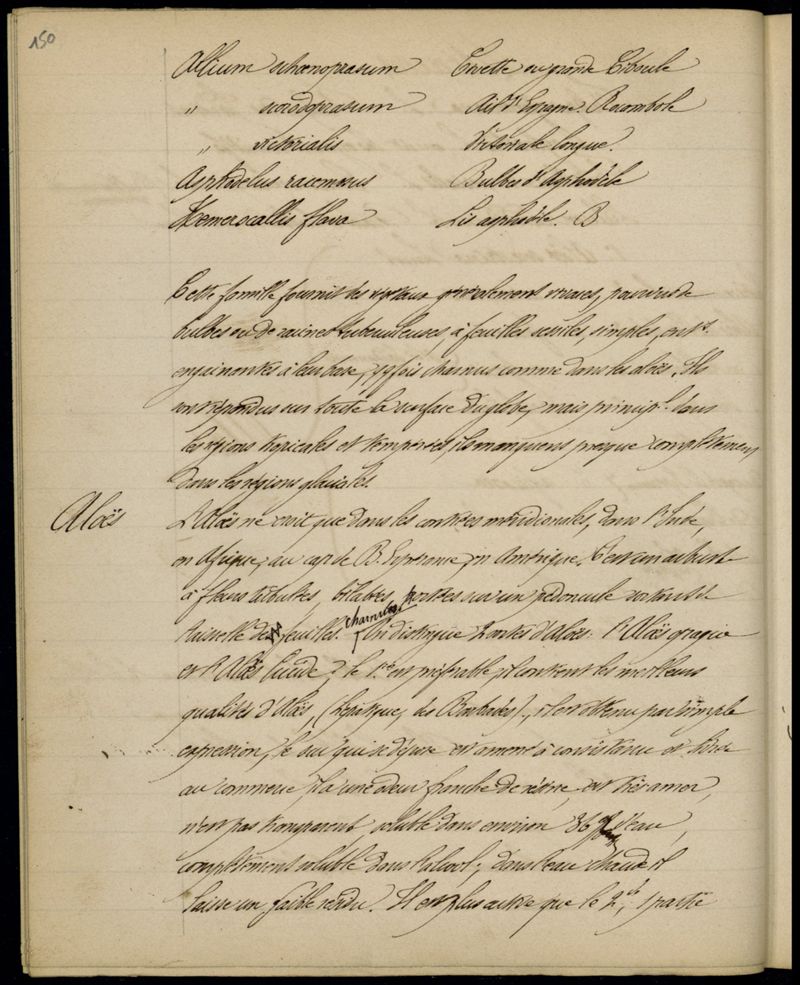 150
Allium schoenoprasum Civette ou grande Ciboule
" scorodoprasum Ail d'Espagne. Rocambole
" victorialis Victoriale longue.
Asphodelus racemosus Bulbes d'Asphodèle
Hemerocallis flava Lis asphodèle. B
Cette famille fournit des végétaux généralement vivaces, pourvus de
bulbes ou de racines tuberculeuses, à feuilles sessiles, simples, ent.
engainantes à leur base, qqfois charnues comme dans les aloës. Ils
sont répandus sur toute la surface du globe, mais principt. dans
les régions tropicales et tempérées, ils manquent presque complètement
dans les régions glaciales.
Aloës
L'Aloës ne croit que dans les contrées méridionales, dans l'Inde,
en Afrique, au cap de B. Espérance, en Amérique. C'est un arbuste
à fleurs bilabiées, portées sur un pédoncule sortant de
l'aisselle des feuilles. charnues On distingue 2 sortes d'Aloës: l'Aloës
et l'Aloës lucide; le 1er est préférable, il contient les meilleurs
qualités d'Aloës, (hépatique, des Barbades), il est obtenu par simple
expression, le suc qui se dépure est amené à consistance et livré
au commerce, il a une odeur franche de résine, est très amer,
n'est pas transparent, soluble dans environ d'eau,
complètement soluble dans l'alcool; dans l'eau chaude il
laisse un faible résidu. Il est plus que le 2d, 1 partie